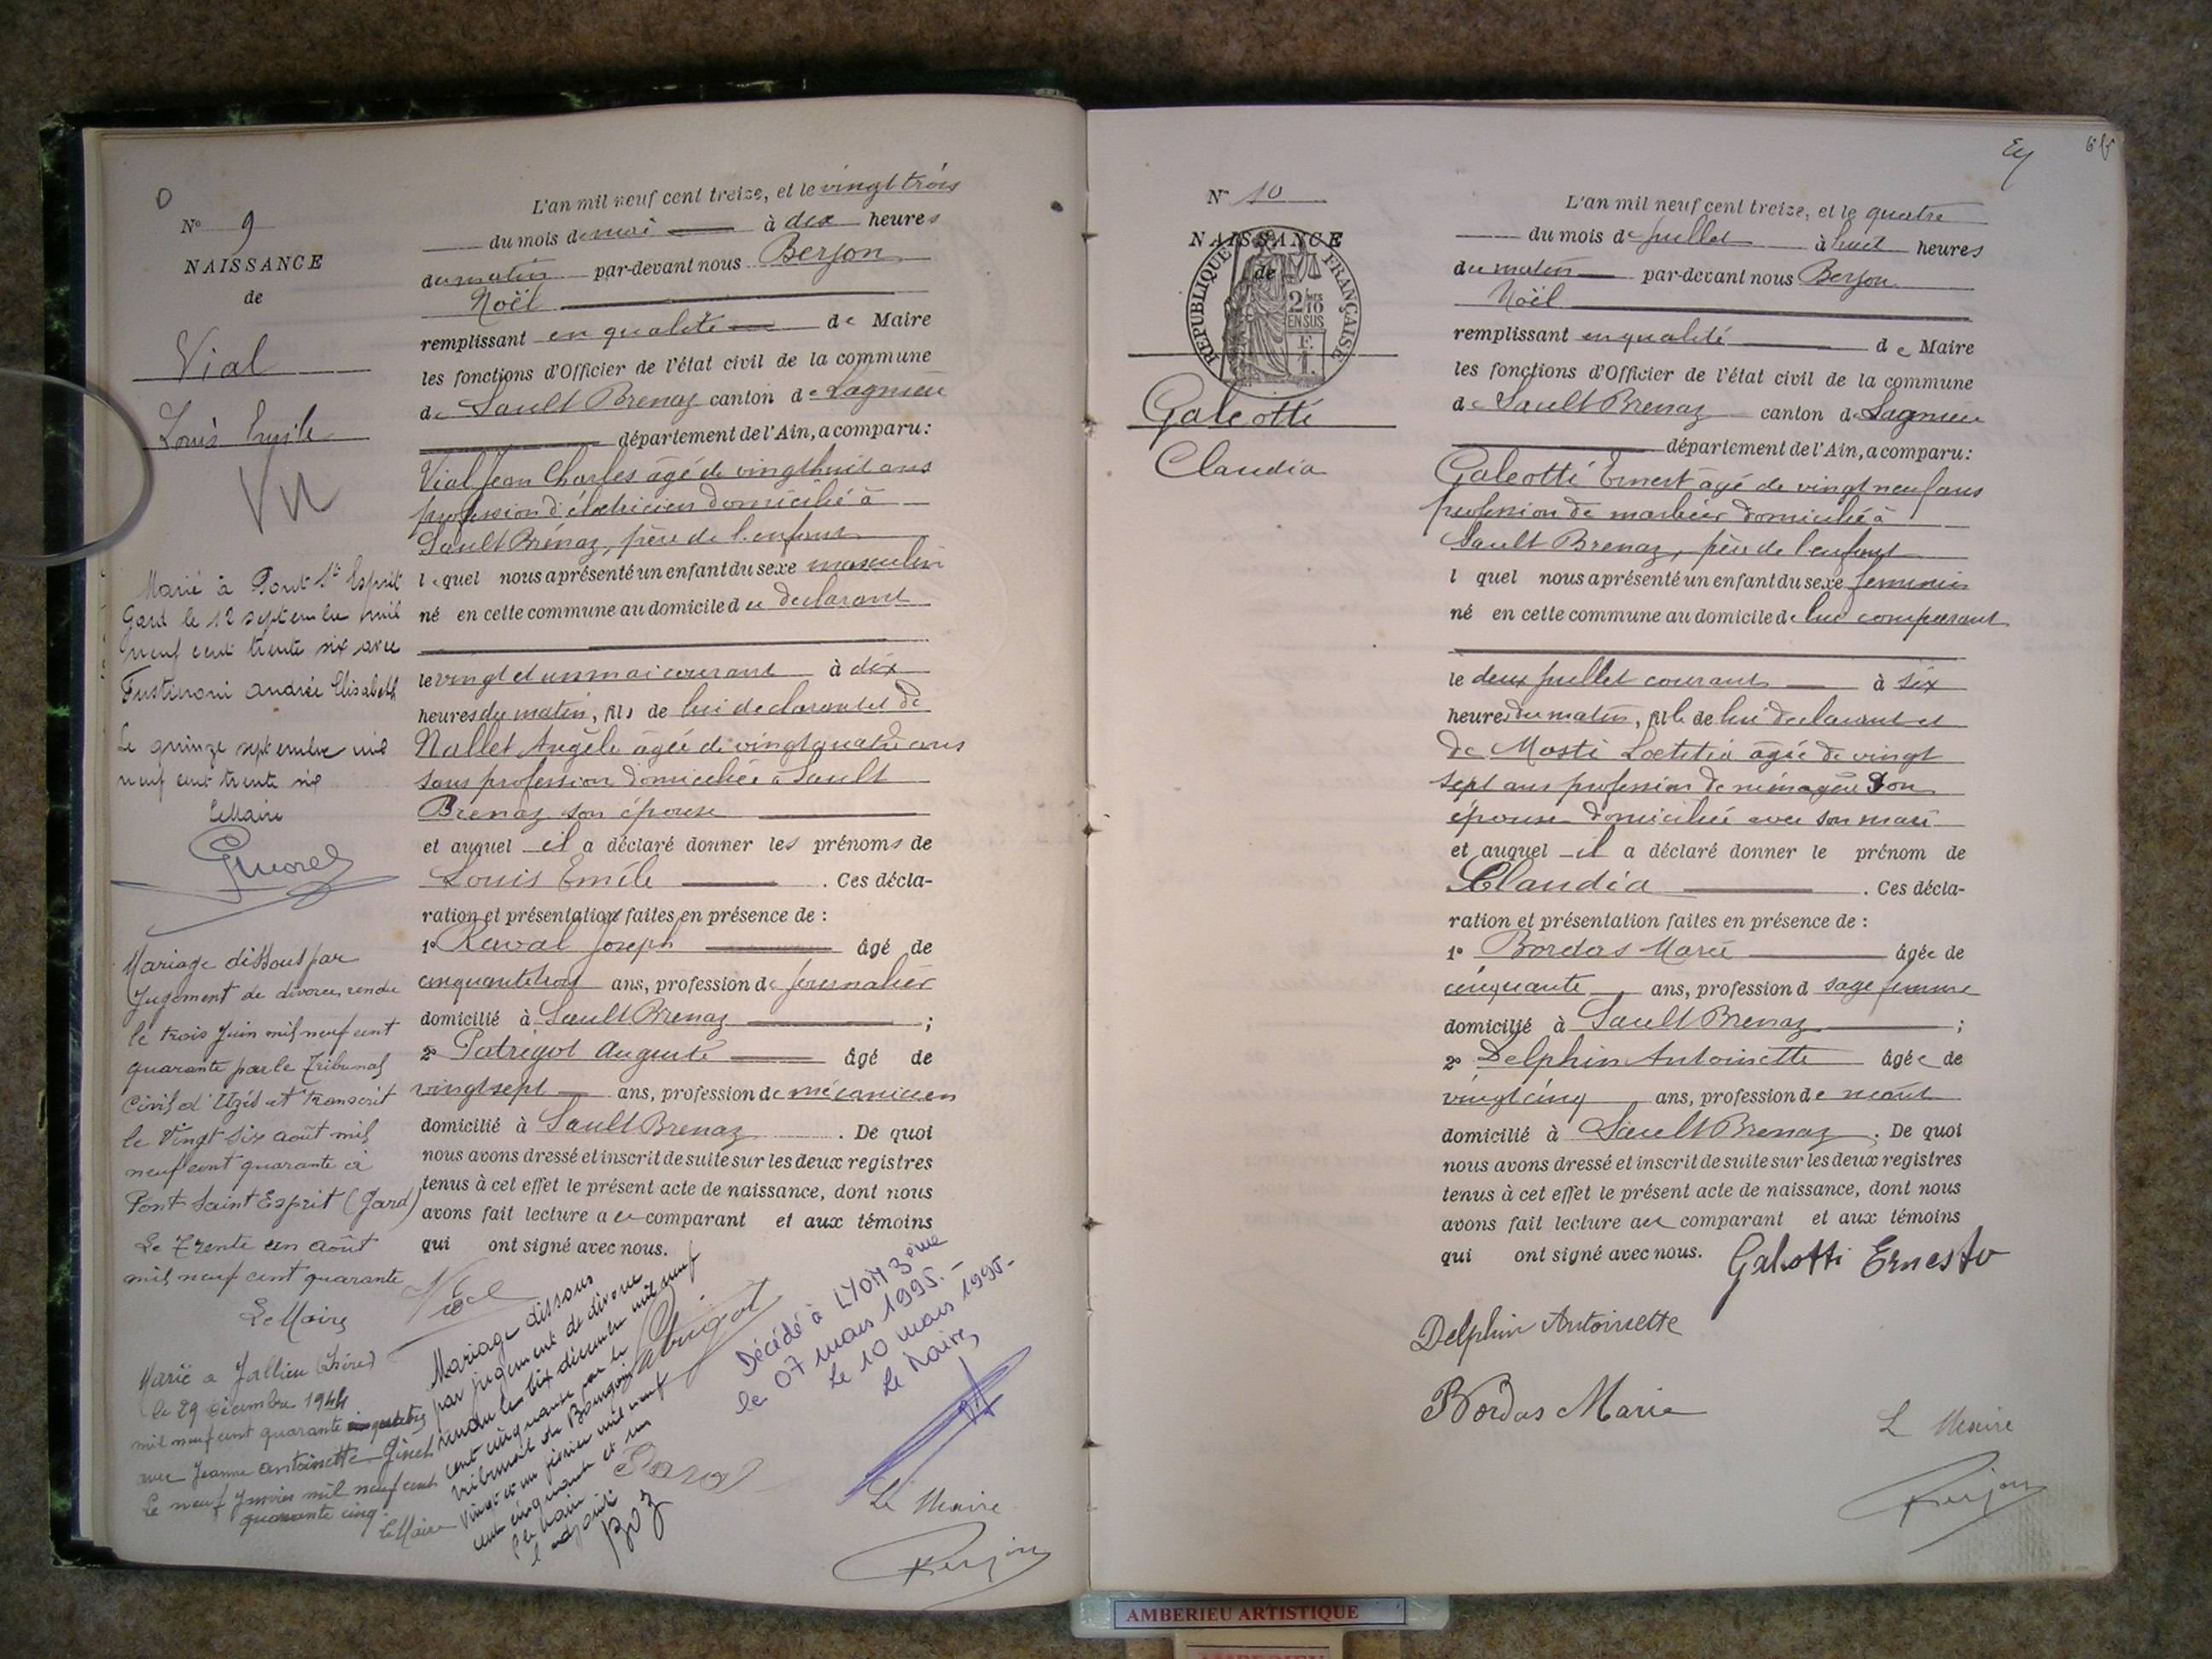 N° 9
NAISSANCE
de
Vial
Louis Emile
Vu
Marié à Pont St Esprit
Gard le 12 septembre mil
neuf cent trente six avec
Fustinoni Andrée Elisabeth
Le quinze septembre mil
neuf cent trente six
Le Maire
Mariage dissous par
Jugement de divorce rendu
le trois Juin mil neuf cent
quarante par le Tribunal
Civil d'Uzès et transcrit
le Vingt Six août mil
neuf cent quarante à
Pont Saint Esprit (Gard)
Le Trente un août
mil neuf cent quarante
Le Maire
Marié à Jallieu (Isère)
le 29 décembre 1944
mil neuf cent quarante quatre
avec Jeanne Antoinette Ginet
Le neuf Janvier mil neuf cent
quarante cinq.
Le Maire
L'an mil neuf cent treize, et le vingt trois
du mois de mai à dix heures
du matin par-devant nous Berjon
Noël
remplissant en qualité de Maire
les fonctions d'Officier de l'état civil de la commune
de Sault Brenaz canton de Lagnieu
département de l'Ain, a comparu :
Vial Jean Charles âgé de vingt huit ans
profession d'électricien domicilié à
Sault Brénaz, père de l'enfant
lequel nous a présenté un enfant du sexe masculin
né en cette commune au domicile du déclarant
le vingt et un mai courant à dix
heures du matin, fils de lui déclarant et de
Nallet Angèle âgée de vingt quatre ans
sans profession domiciliée à Sault
Brenaz son épouse
et auquel il a déclaré donner les prénoms de
Louis Emile . Ces décla-
ration et présentation faites en présence de :
1° Raval Joseph âgé de
ans, profession de journalier
domicilié à Sault Brenaz ;
2° Patrigot Auguste âgé de
vingt sept ans, profession de mécanicien
domicilié à Sault Brenaz . De quoi
nous avons dressé et inscrit de suite sur les deux registres
tenus à cet effet le présent acte de naissance, dont nous
avons fait lecture au comparant et aux témoins
qui ont signé avec nous.
Vial
Patrigot
Raval
Mariage dissous
par jugement de divorce
rendu le dix décembre mil neuf
cent cinquante par le
tribunal de Bourgoin
Vingt et un février mil neuf
cent cinquante et un
l'adjoint
Décédé à LYON 3ème
le 07 mars 1995.-
Le 10 mars 1995-
Le Maire,
Le Maire
Berjon
N° 10
NAISSANCE
de
RÉPUBLIQUE FRANÇAISE
2/10
EN SUS
Galeotti
Claudia
L'an mil neuf cent treize, et le quatre
du mois de juillet à huit heures
du matin par-devant nous Berjon
Noël
remplissant en qualité de Maire
les fonctions d'Officier de l'état civil de la commune
de Sault Brenaz canton de Lagnieu
département de l'Ain, a comparu :
Galeotti Ernest âgé de vingt neuf ans
profession de marbrier domicilié à
Sault Brenaz, père de l'enfant
l quel nous a présenté un enfant du sexe féminin
né en cette commune au domicile de lui comparant
le deux juillet courant à six
heures du matin, fille de lui déclarant et
de Mosti Loetitia âgée de vingt
sept ans profession de ménagère son
épouse domiciliée avec son mari
et auquel il a déclaré donner le prénom de
Claudia . Ces décla-
ration et présentation faites en présence de :
1° Bordas Marie âgée de
cinquante ans, profession d sage femme
domicilié à Sault Brenaz ;
2° Delphin Antoinette âgée de
vingt cinq ans, profession de néant
domicilié à Sault Brenaz . De quoi
nous avons dressé et inscrit de suite sur les deux registres
tenus à cet effet le présent acte de naissance, dont nous
avons fait lecture au comparant et aux témoins
qui ont signé avec nous. Galeotti Ernesto
Delphin Antoinette
Bordas Marie
Le Maire
Berjon
AMBERIEU ARTISTIQUE